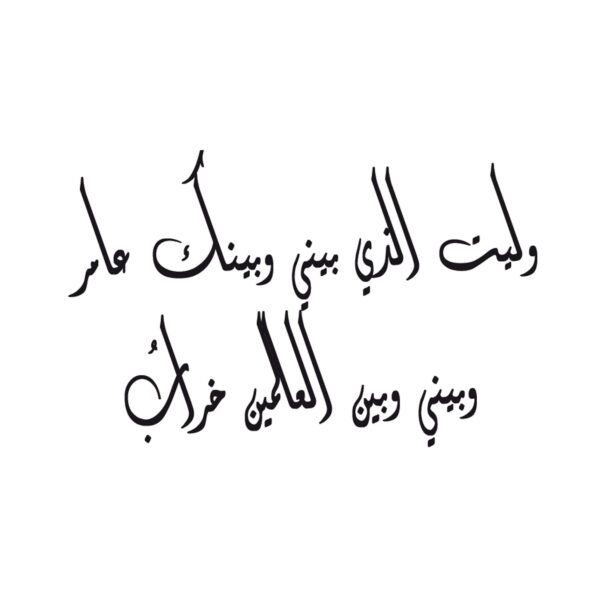 وليت الذي بيني وبينك عامر
وبيني وبين العالمين خرابُ